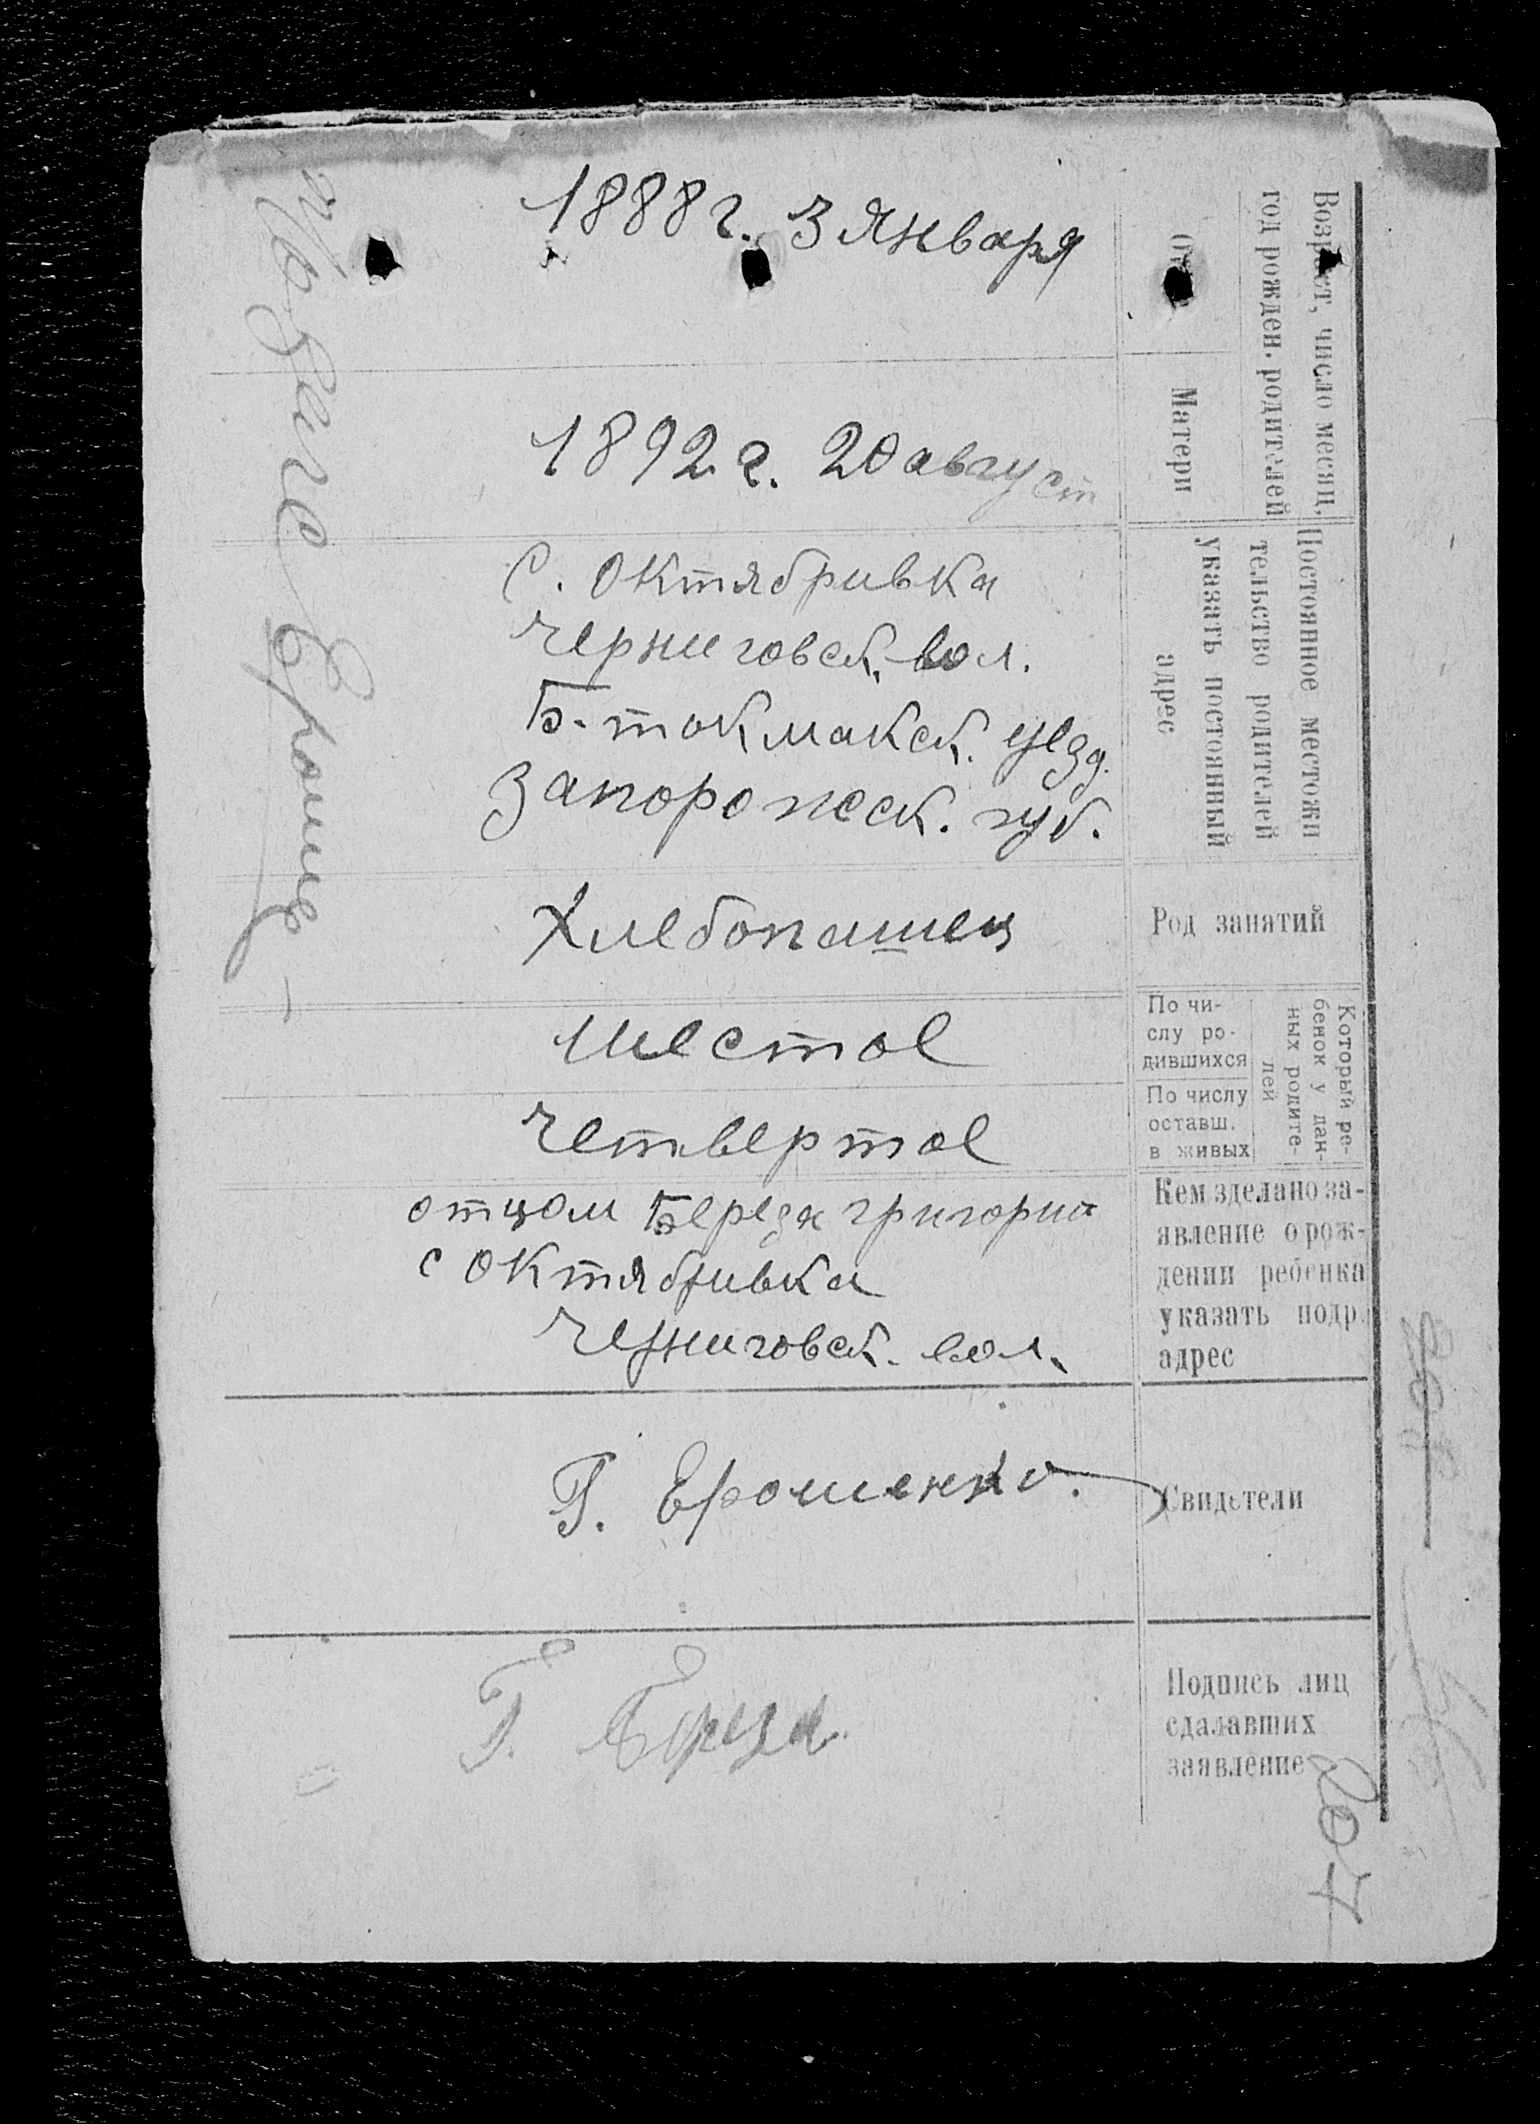 Возраст, число месяц,
год рожден. родителей
Матери
1888 г. 3 Января
1892 г. 20 август
Постоянное местожи
тельство родителей
указать постоянный
адрес
с. Октябривка
Черниговск. вол.
Б. токмакск. уезд.
Запорожск. губ.
Род занятий
Хлебопашец
Который ре-
бенок у дан-
ных родите-
лей
По чи-
слу ро-
дившихся
шестое
По числу
оставш.
в живых
четвертое
Кем зделано за-
явление о рож-
дении ребенка
указать подр.
адрес
отцом Береза григорий
с Октябривка
Черниговск. вол.
Свидетели
Г. Ерошенко.
Подпись лиц
сдалавших
заявление
Г. Береза
207